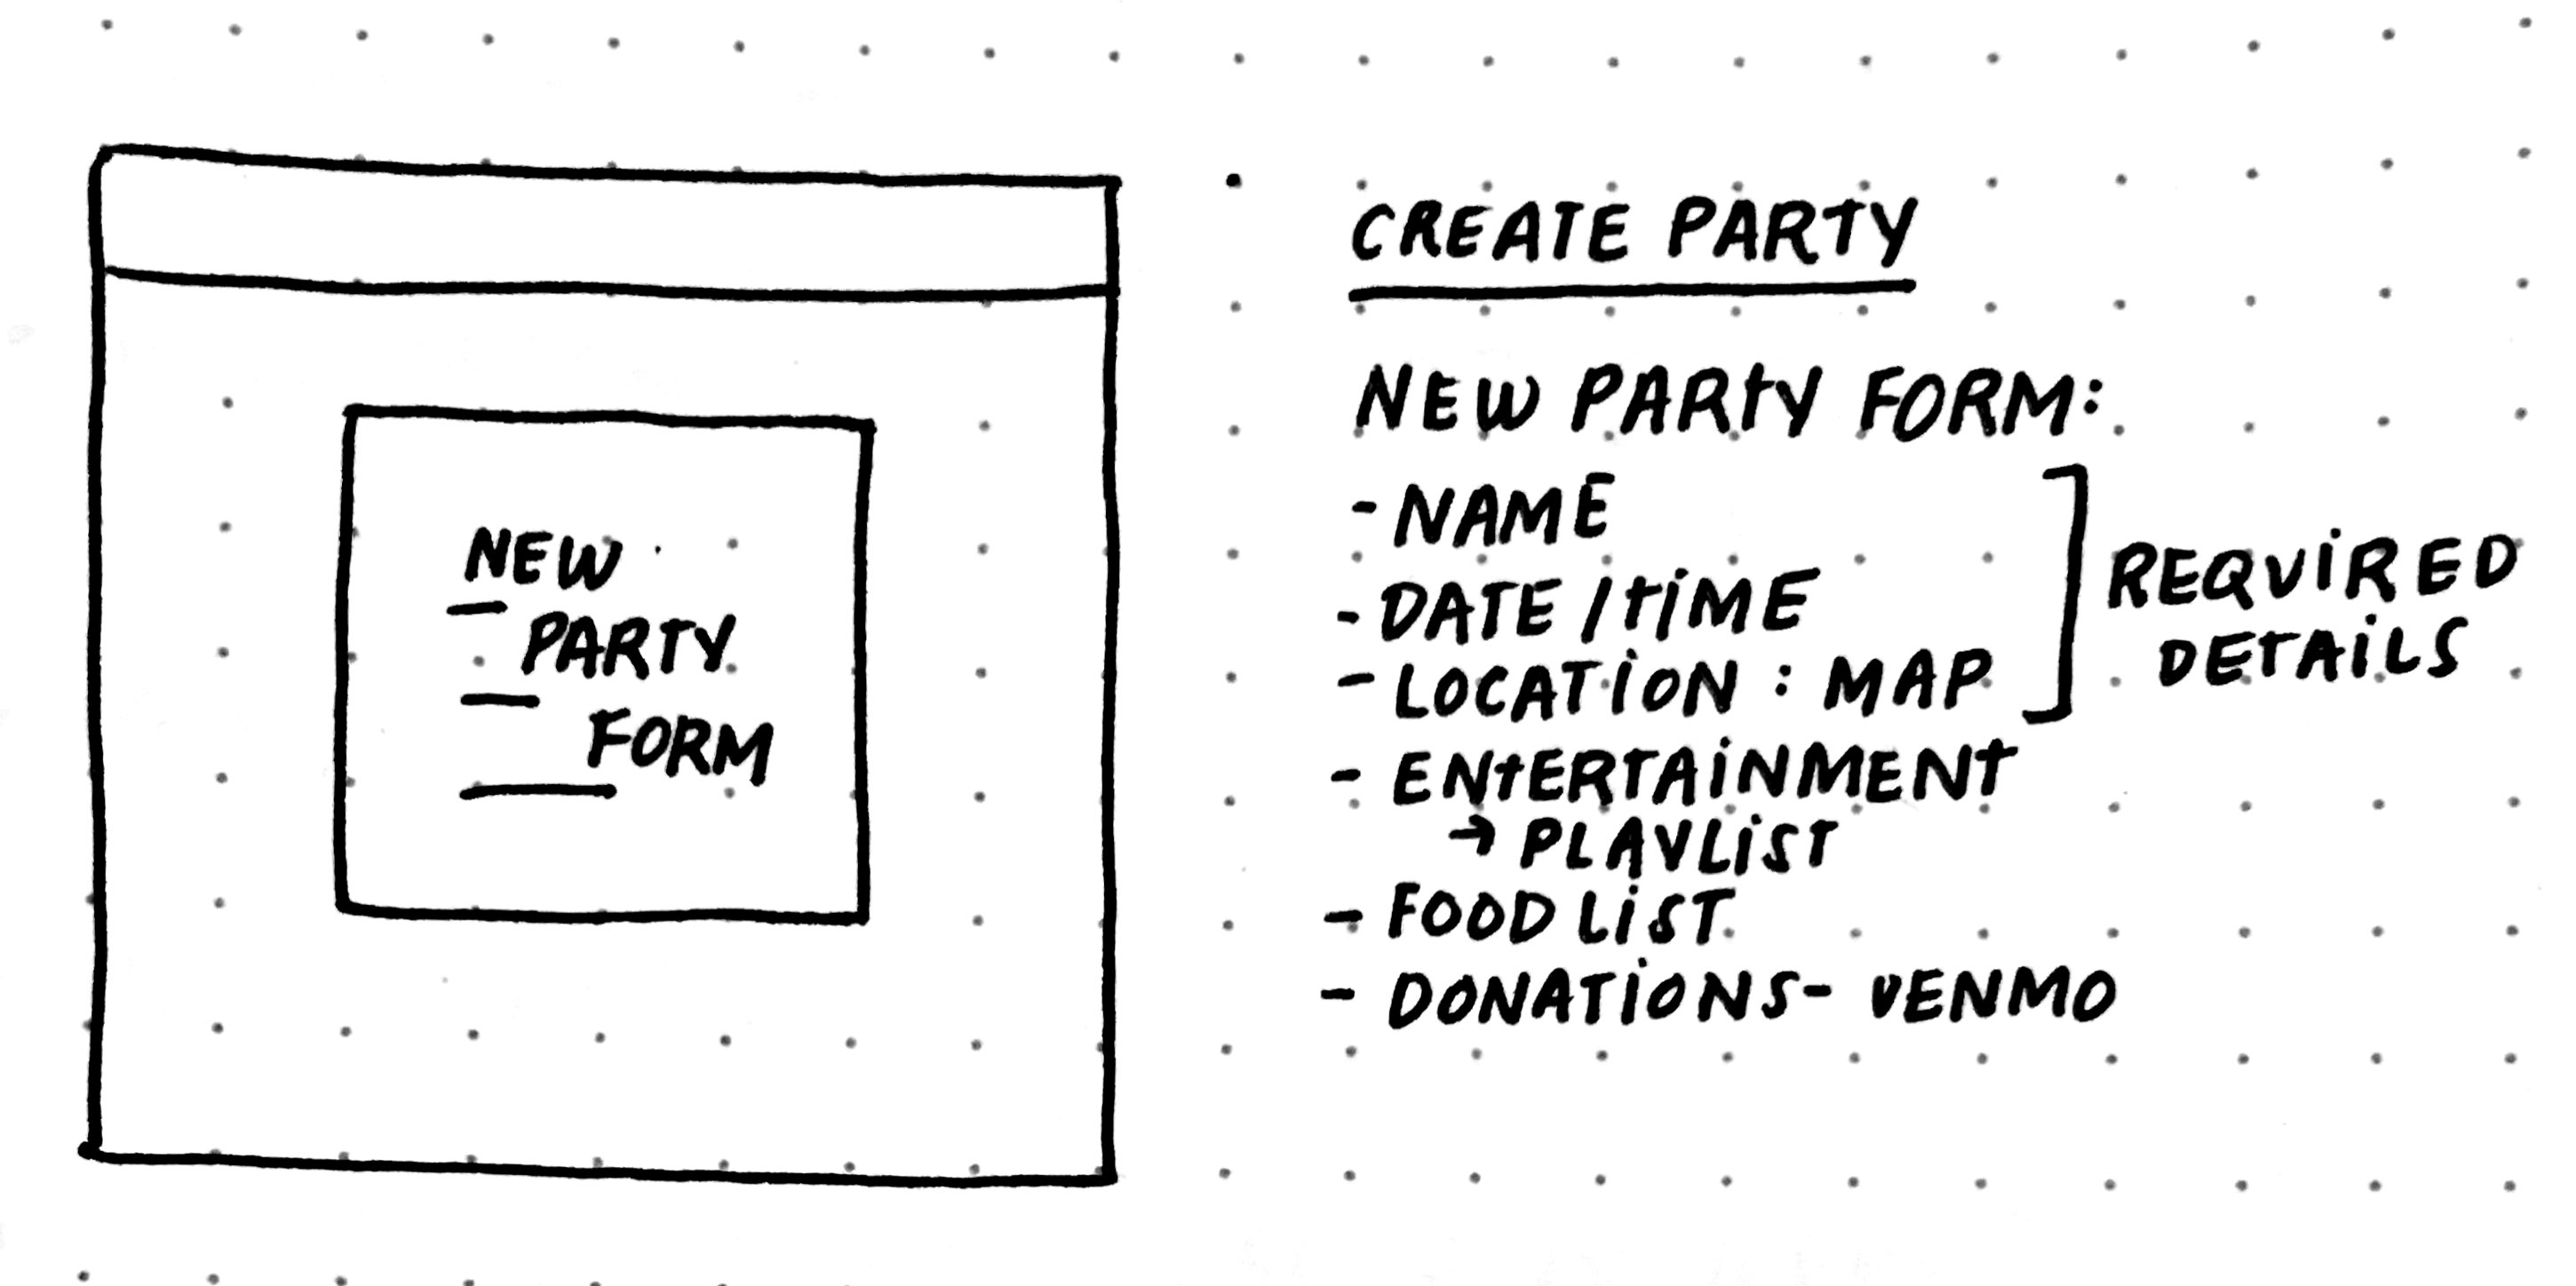 NEW
PARTY
FORM
CREATE PARTY
NEW PARTY FORM:
- NAME
- DATE / TIME
- LOCATION : MAP
REQUIRED
DETAILS
- ENTERTAINMENT
→ PLAYLIST
- FOOD LIST
- DONATIONS - VENMO